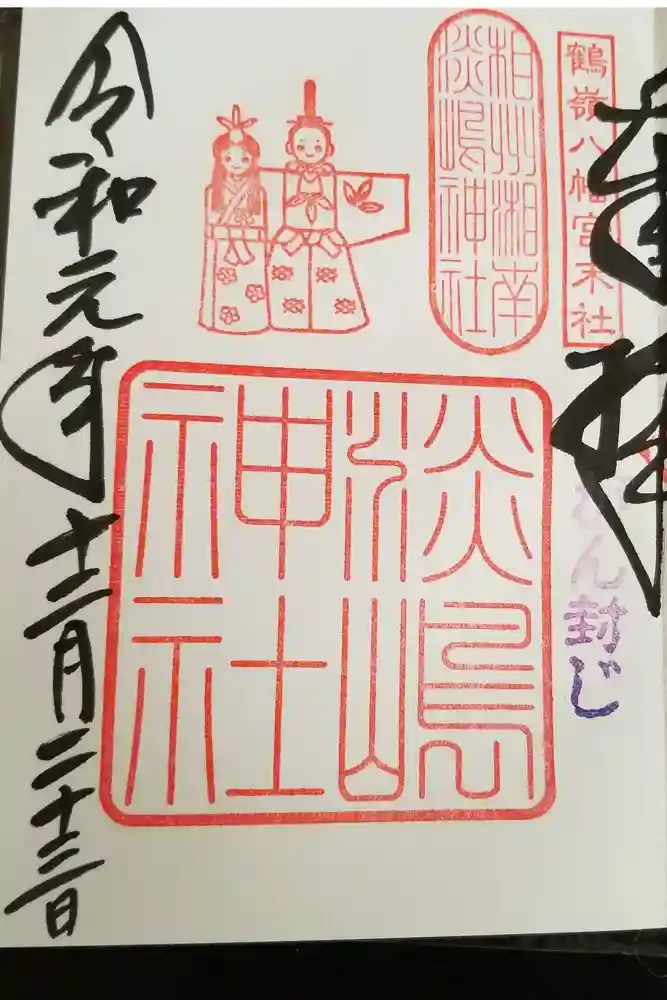 奉拝
鶴嶺八幡宮末社
相州湘南
淡嶋神社
ん封じ
淡嶋
神社
令和元年十二月二十三日